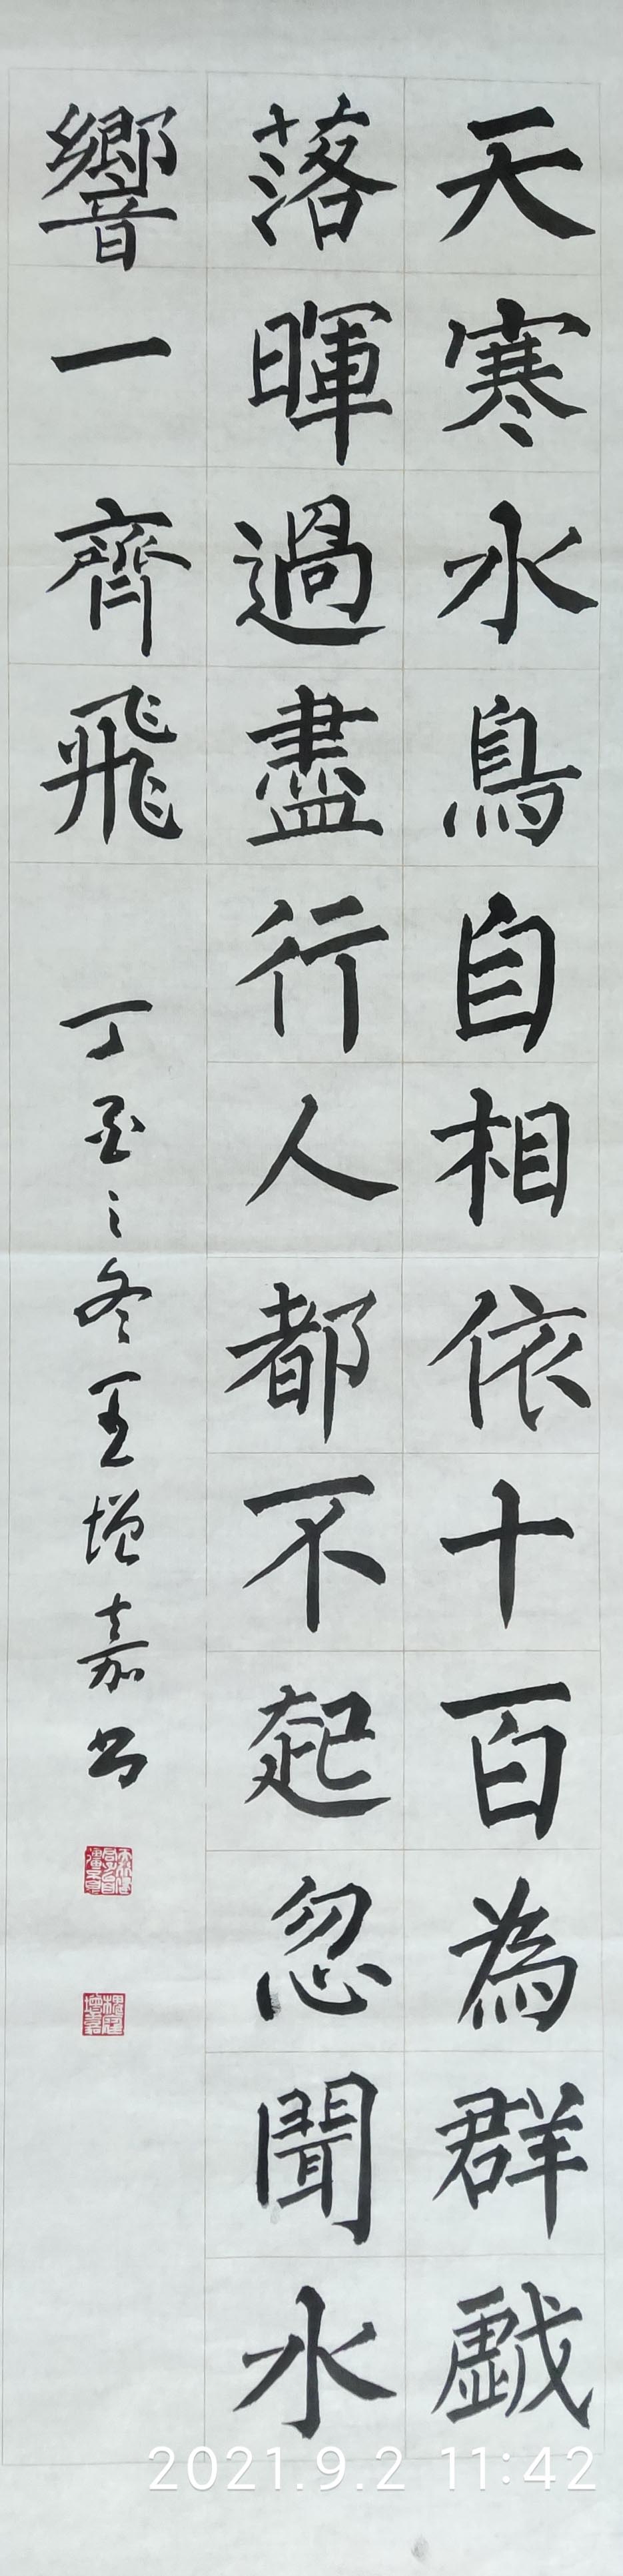 天寒水鳥自相依十百為群戲
落暉過盡行人都不起忽聞水
響一齊飛
丁酉之冬王增嘉書
2021.9.2 11:42